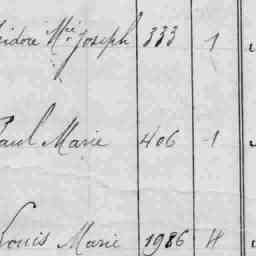 Isidore Mie Joseph 333 1
Paul Marie 406 1
Louis Marie 1986 4